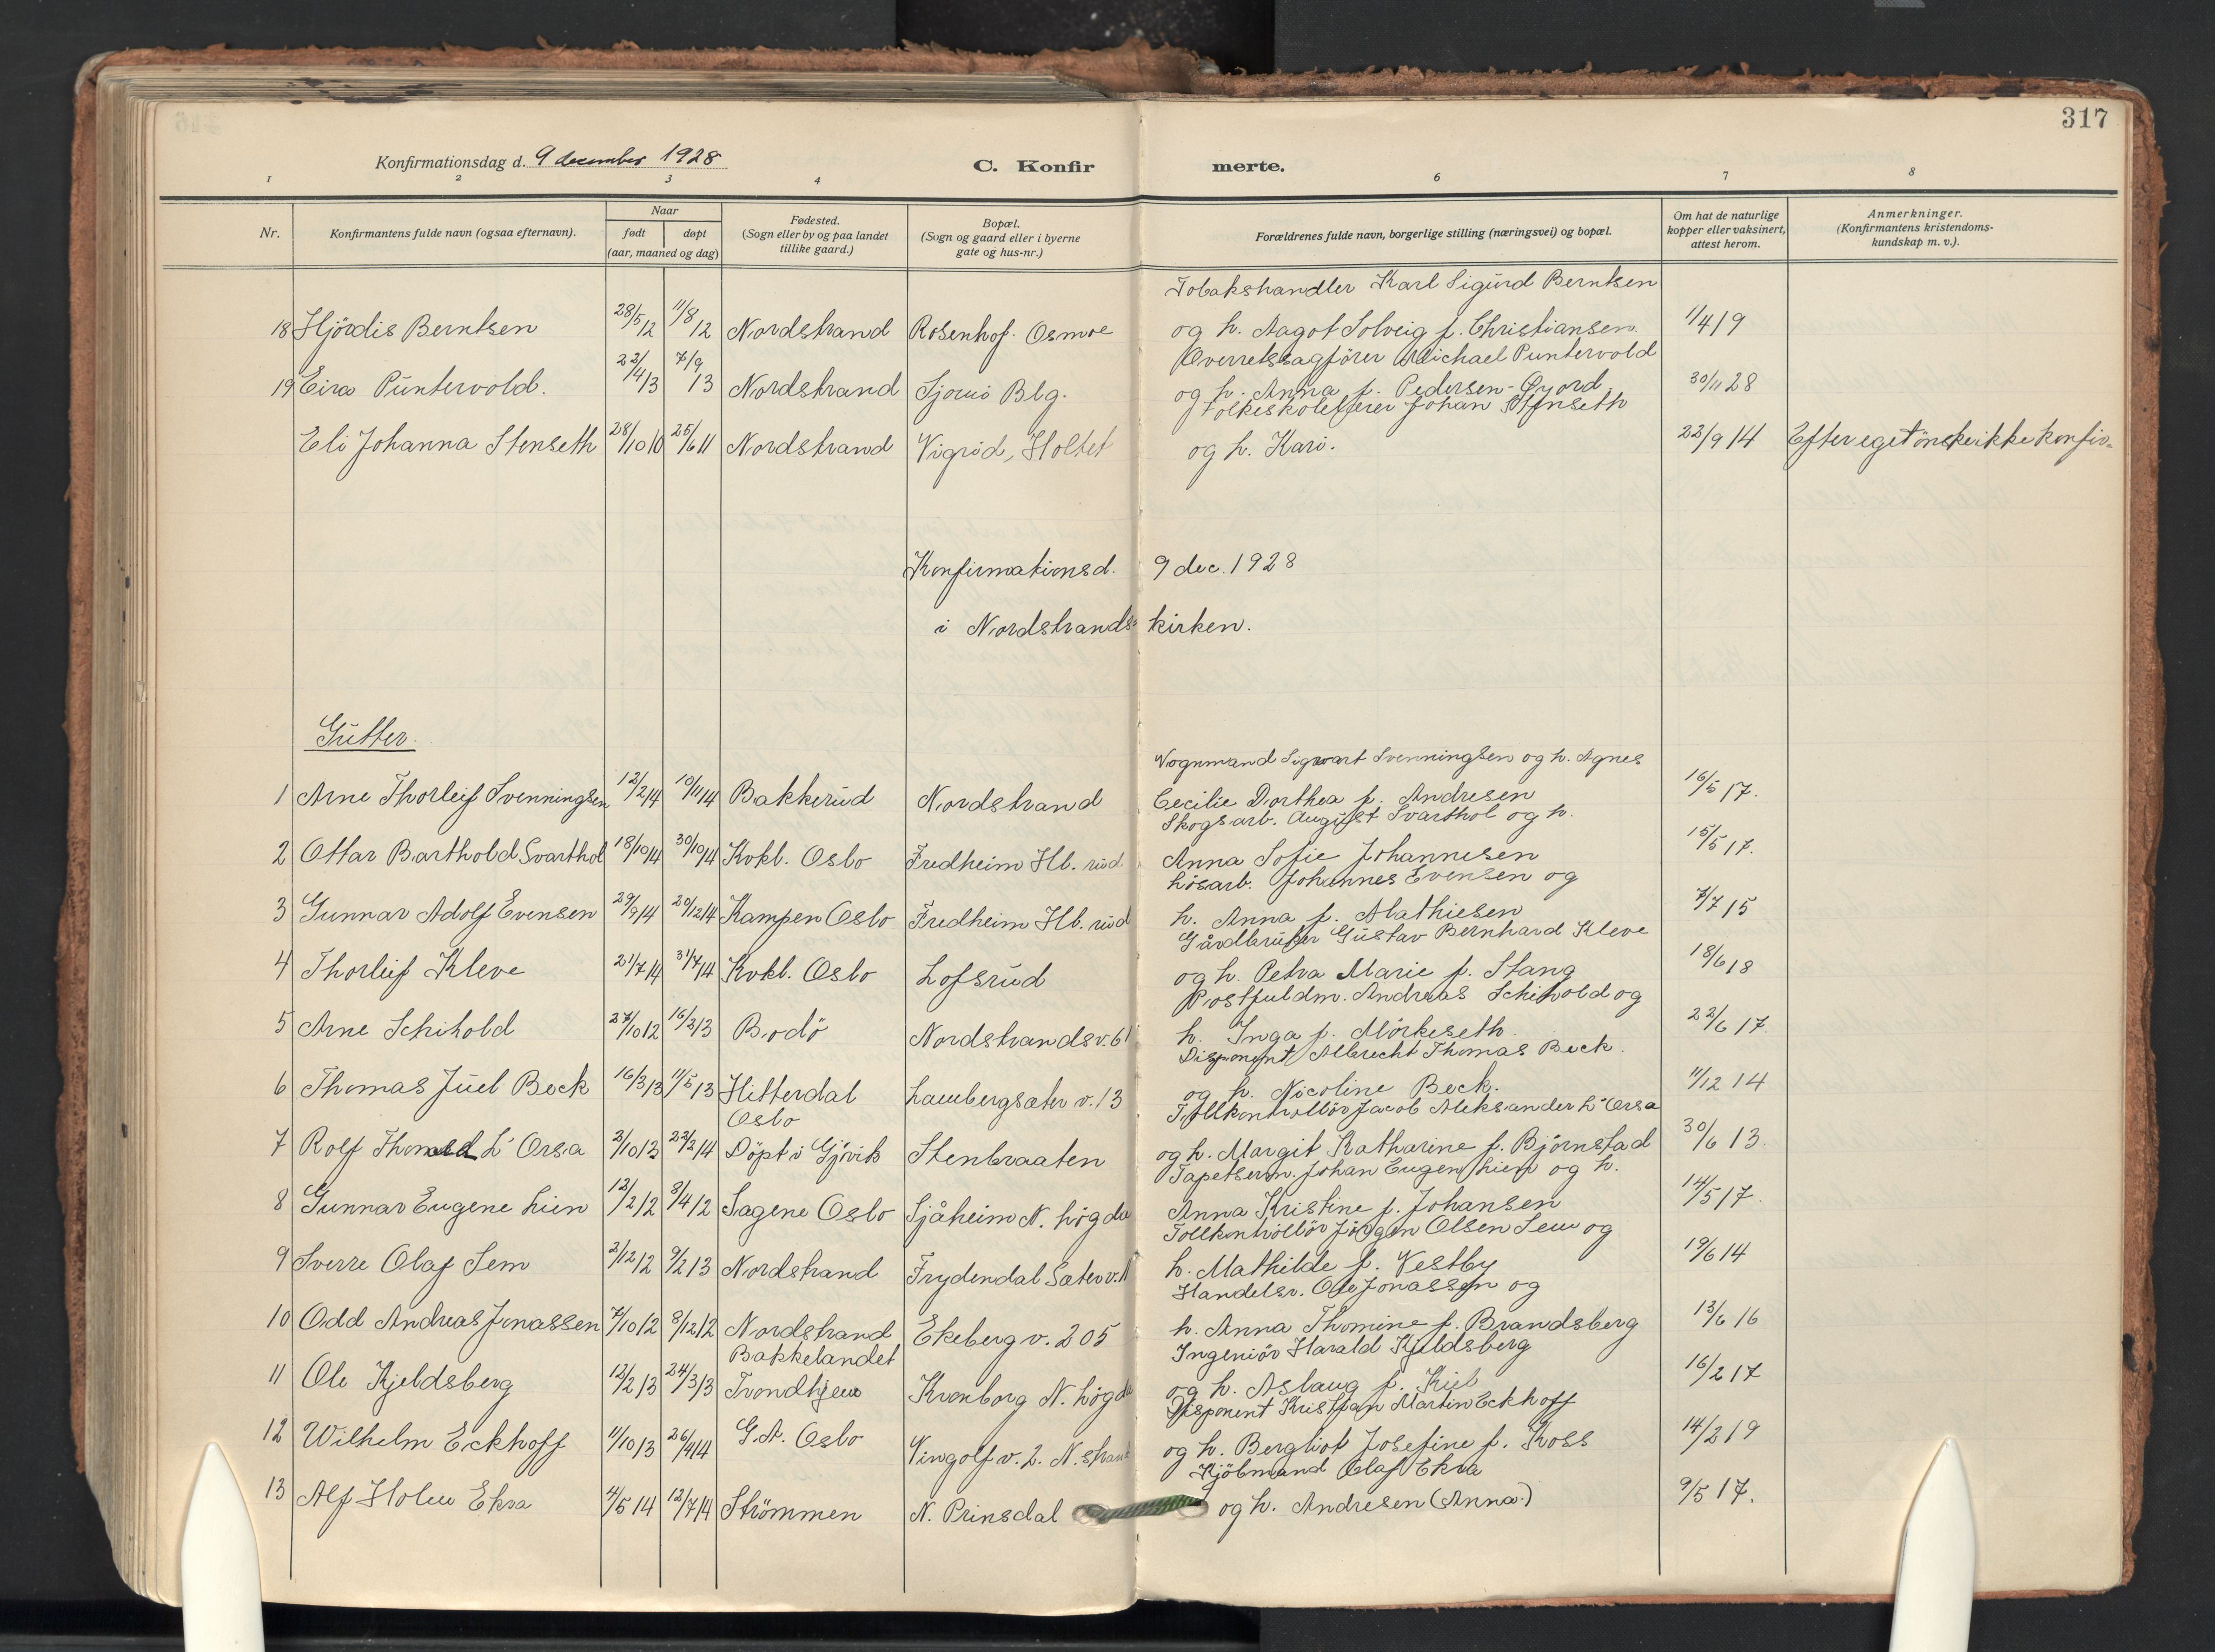 317
Konfirmationsdag d. 9 december 1928
C. Konfirmerte.
1 2 3 4 6 7 8
Nr.
Konfirmantens fulde navn (ogsaa efternavn).
Naar
født døpt
(aar, maaned og dag)
Fødested.
(Sogn eller by og paa landet
tillike gaard.)
Bopæl.
(Sogn og gaard eller i byerne
gate og hus-nr.)
Forældrenes fulde navn, borgerlige stilling (næringsvei) og bopæl.
Om hat de naturlige
kopper eller vaksinert,
attest herom.
Anmerkninger.
(Konfirmantens kristendoms-
kundskap m. v.).
Tobakshandler Karl Sigurd Berntsen
18 Hjördis Berntsen 28/5 12 11/8 12 Nordstrand Rosenhof. Osmoe og h. Aagot Solveig f. Christiansen. 1/4 19
Overretssagförer Michael Puntervold
19 Eira Puntervold. 22/4 13 7/9 13 Nordstrand Blg. og h. Anna f. Pedersen-Gyord. 30/11 28
Folkeskolelærer Johan Stenseth
Eli Johanna Stenseth 28/10 10 25/6 11 Nordstrand Vigrid, Holtet og h. Kari. 22/9 14 Efter eget önske ikke konfir=
Konfirmationsd. 9 dec. 1928
i Nordstrands kirken.
Gutter.
Vognmand Sigvart Svenningsen og h. Agnes
1 Arne Thorleif Svenningsen 12/2 14 10/11 14 Bakkerud Nordstrand Cecilie Dorthea f. Andresen 16/5 17.
Skogsarb. August Svarthol og h.
2 Ottar Barthold Svarthol 18/10 14 30/10 14 Kvkl. Oslo Fredheim Hb. rud. Anna Sofie Johannesen 15/5 17.
Lösarb. Johannes Evensen og
3 Gunnar Adolf Evensen 29/9 14 20/12 14 Kampen Oslo Fredheim Hb. rud h. Anna f. Mathiesen 7/7 15
Gårdbruker Gustav Bernhard Kleve
4 Thorleif Kleve 21/7 14 31/7 14 Kvkl. Oslo Lofsrud og h. Petra Marie f. Stang 18/6 18
Postfuldm. Andreas Schihold og
5 Arne Schihold 27/10 12 16/2 13 Bodö Nordstrandsv. 61 h. Inga f. Mörkeseth. 22/6 17.
Disponent Albrecht Thomas Beck.
6 Thomas Juel Beck 16/3 13 11/5 13 Hitterdal Lambergsæter v. 13 og h. Nicoline Beck. 11/12 14
Oslo Tollkontrollör Jacob Aleksander L'Orsa
7 Rolf L'Orsa 2/10 13 22/2 14 Döpt i Gjövik Stenbraaten og h. Margit Katharine f. Björnstad 30/6 13.
Tapetserm. Johan Eugen Lien og h.
8 Gunnar Eugene Lien 12/2 12 8/4 12 Sagene Oslo Sjåheim N. högda Anna Kristine f. Johansen 14/5 17.
Tollkontrollör Jörgen Olsen Sem og
9 Sverre Olaf Sem 2/12 12 9/2 13 Nordstrand Frydendal Sæter v. h. Mathilde f. Vestby 19/6 14
Handelsr. Ole Jonassen og
10 Odd Andreas Jonassen 7/10 12 8/12 12 Nordstrand Ekeberg v. 205 h. Anna Thomine f. Brandsberg 13/6 16
Bakkelandet Ingeniör Harald Kjeldsberg
11 Ole Kjeldsberg 12/2 13 24/3 13 Trondhjem Kronborg N. högda og h. Aslaug f. Kiel 16/2 17
Disponent Kristian Martin Eckhoff
12 Wilhelm Eckhoff 11/10 13 26/4 14 G.A. Oslo Vingolf v. 2. N. strand og h. Bergliot Josefine f. Koss 14/2 19
Kjöbmand Olaf Ekra
13 Alf Holm Ekra 4/5 14 12/7 14 Strömmen N. Prinsdal og h. Andresen (Anna.) 9/5 17.